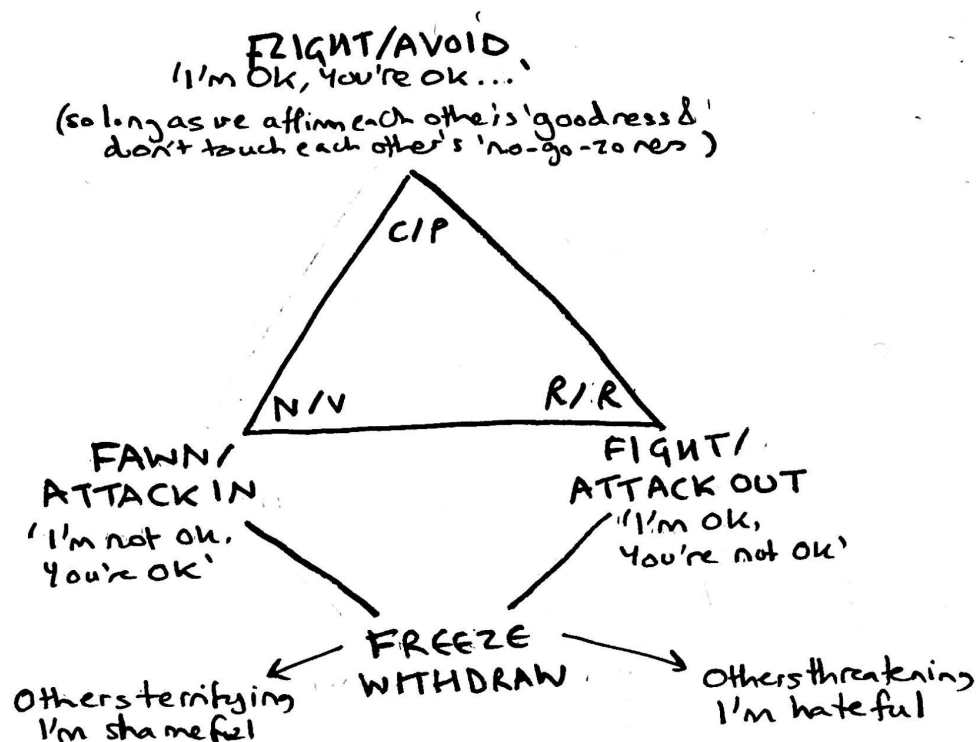 FLIGHT/AVOID
'I'm OK, You're OK...'
(so long as we affirm each other's 'goodness &'
don't touch each other's 'no-go-zones)
C/P
N/V
R/R
FAWN/
ATTACK IN
'I'm not OK,
You're OK'
FIGHT/
ATTACK OUT
'I'm OK,
You're not OK'
FREEZE
WITHDRAW
Others terrifying
I'm shameful
Others threatening
I'm hateful